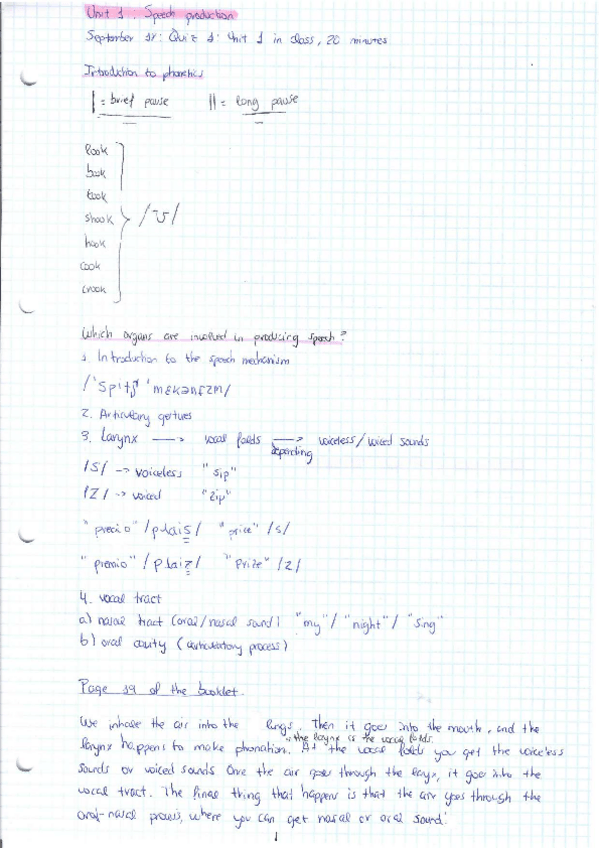 Unit 1. Speech production
September 18: Quiz 1: Unit 1 in class, 20 minutes
Introduction to phonetics
| = brief pause || = long pause
look
book
took
shook } /ʊ/
hook
cook
crook
Which organs are involved in producing speech?
1. Introduction to the speech mechanism
/'spitʃ 'mɛkənɪzm/
2. Articulatory gestures
3. Larynx → vocal folds → depending voiceless/voiced sounds
/S/ → voiceless "sip"
/Z/ → voiced "zip"
"precio" /pɹais/ "price" /s/
"premio" /pɹaiz/ "Prize" /z/
4. vocal tract
a) nasal tract (oral/nasal sound) "my"/ "night"/ "sing"
b) oral cavity (articulatory process)
Page 19 of the booklet.
We inhale the air into the lungs. Then it goes into the mouth, and the
larynx happens to make phonation. At the vocal folds you get the voiceless
the larynx is the vocal folds.
sounds or voiced sounds. Once the air goes through the, it goes into the
vocal tract. The final thing that happens is that the air goes through the
oral-nasal process, where you can get nasal or oral sound.
1